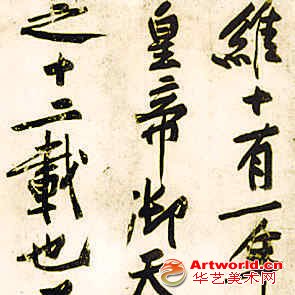 維十有一
皇帝御天
之十二載也
Artworld.cn
华艺美术网